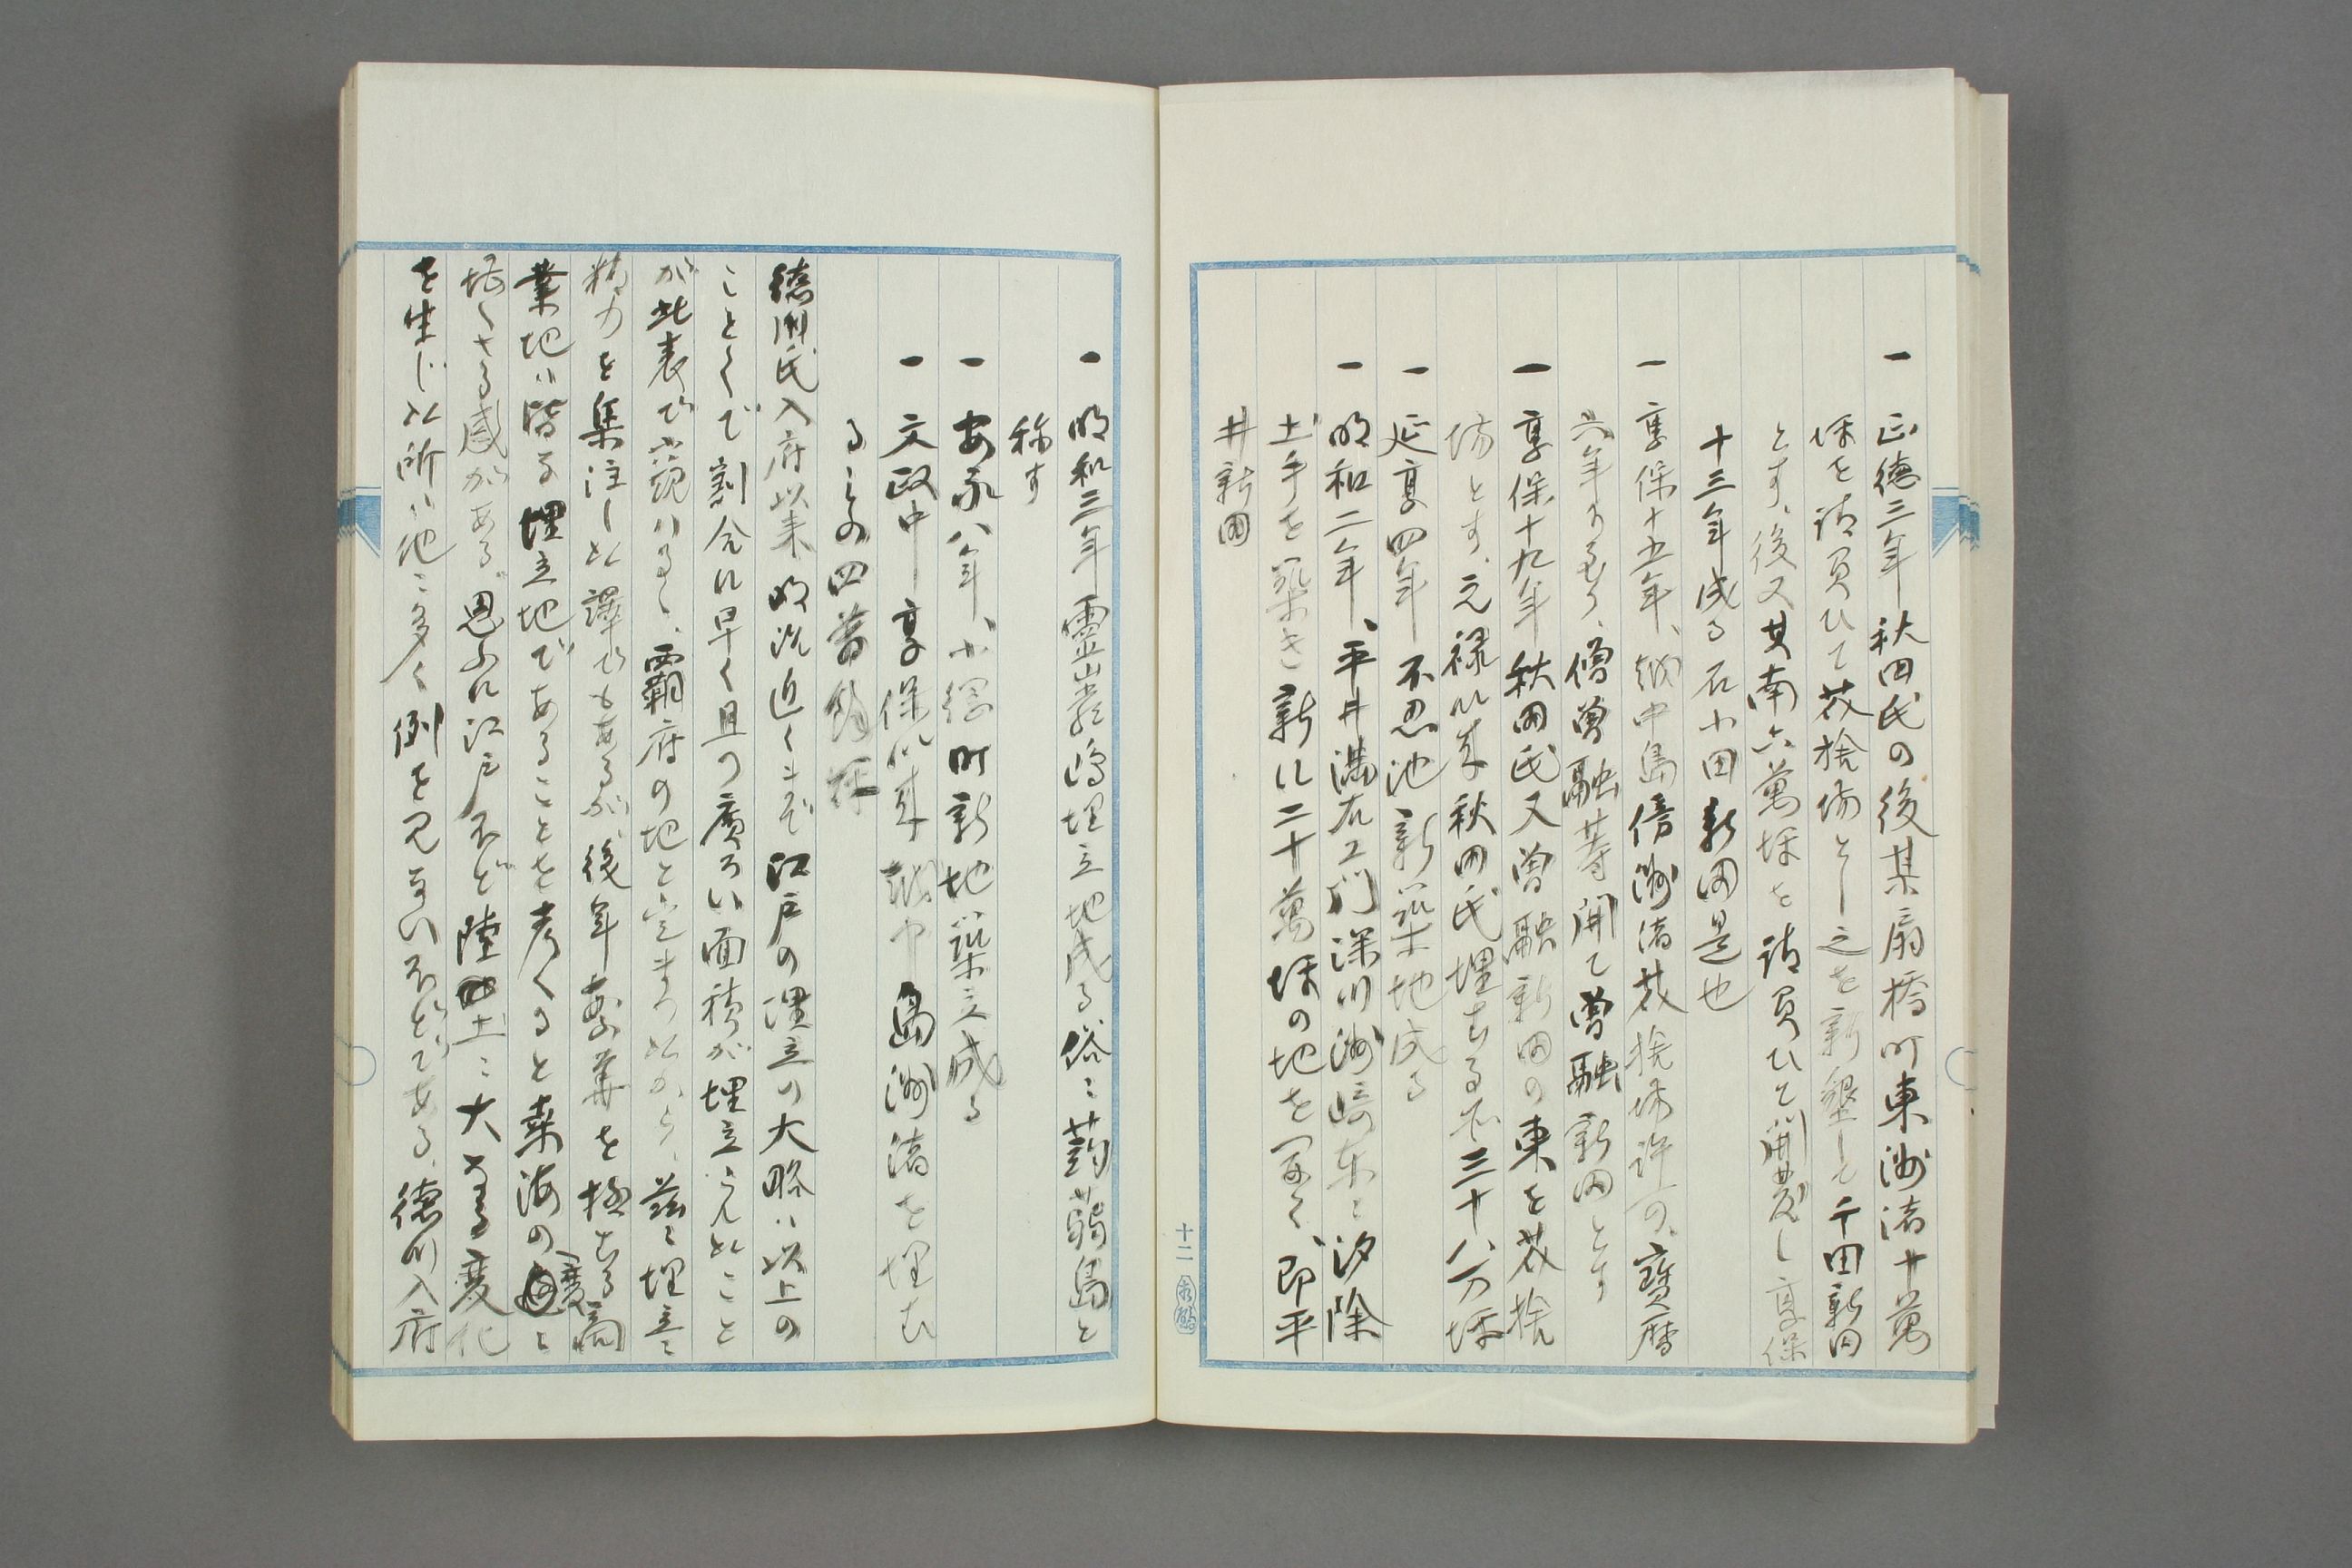 一 正徳三年秋田氏の後某扇橋町東洲渚十萬
坪を請負ひて芥捨場とし之を新墾して千田新田
とす、後又其南六萬坪を請負ひて開農し享保
十三年成る石小田新田是也
一 享保十五年、越中島傍洲渚芥捨場許可、寶暦
六年 僧曽融等開て曽融新田とす
一 享保十九年秋田氏又曽融新田の東を芥捨
場とす、元禄以来秋田氏埋むる所三十八万坪
一 延享四年不忍池新築地成る
一 明和二年、平井満右エ門深川洲崎東に汐除
土手を築き新に二十萬坪の地を 、即平
井新田
十二
一 明和三年靈岸嶋埋立地成る、俗に蒟蒻島と
称す
一 安永八年、小網町新地築立成る
一 文政中享保以来越中島洲渚を埋む
るもの四萬 坪
徳川氏入府以来明治近くまで江戸の埋立の大略は以上の
ことくで割合に早く且つ廣ろい面積が埋立られたこと
が此表で窺はるゝ、覇府の地と定まつたから、茲に埋立に
精力を集注した譯でもあるが、後年繁華を極むる商
業地は皆な埋立地であることを考へると桒海の變に
堪へざる感がある。思ふに江戸ほど陸土に大なる變化
を生じた所は他に多く例を見ないほどである、徳川入府